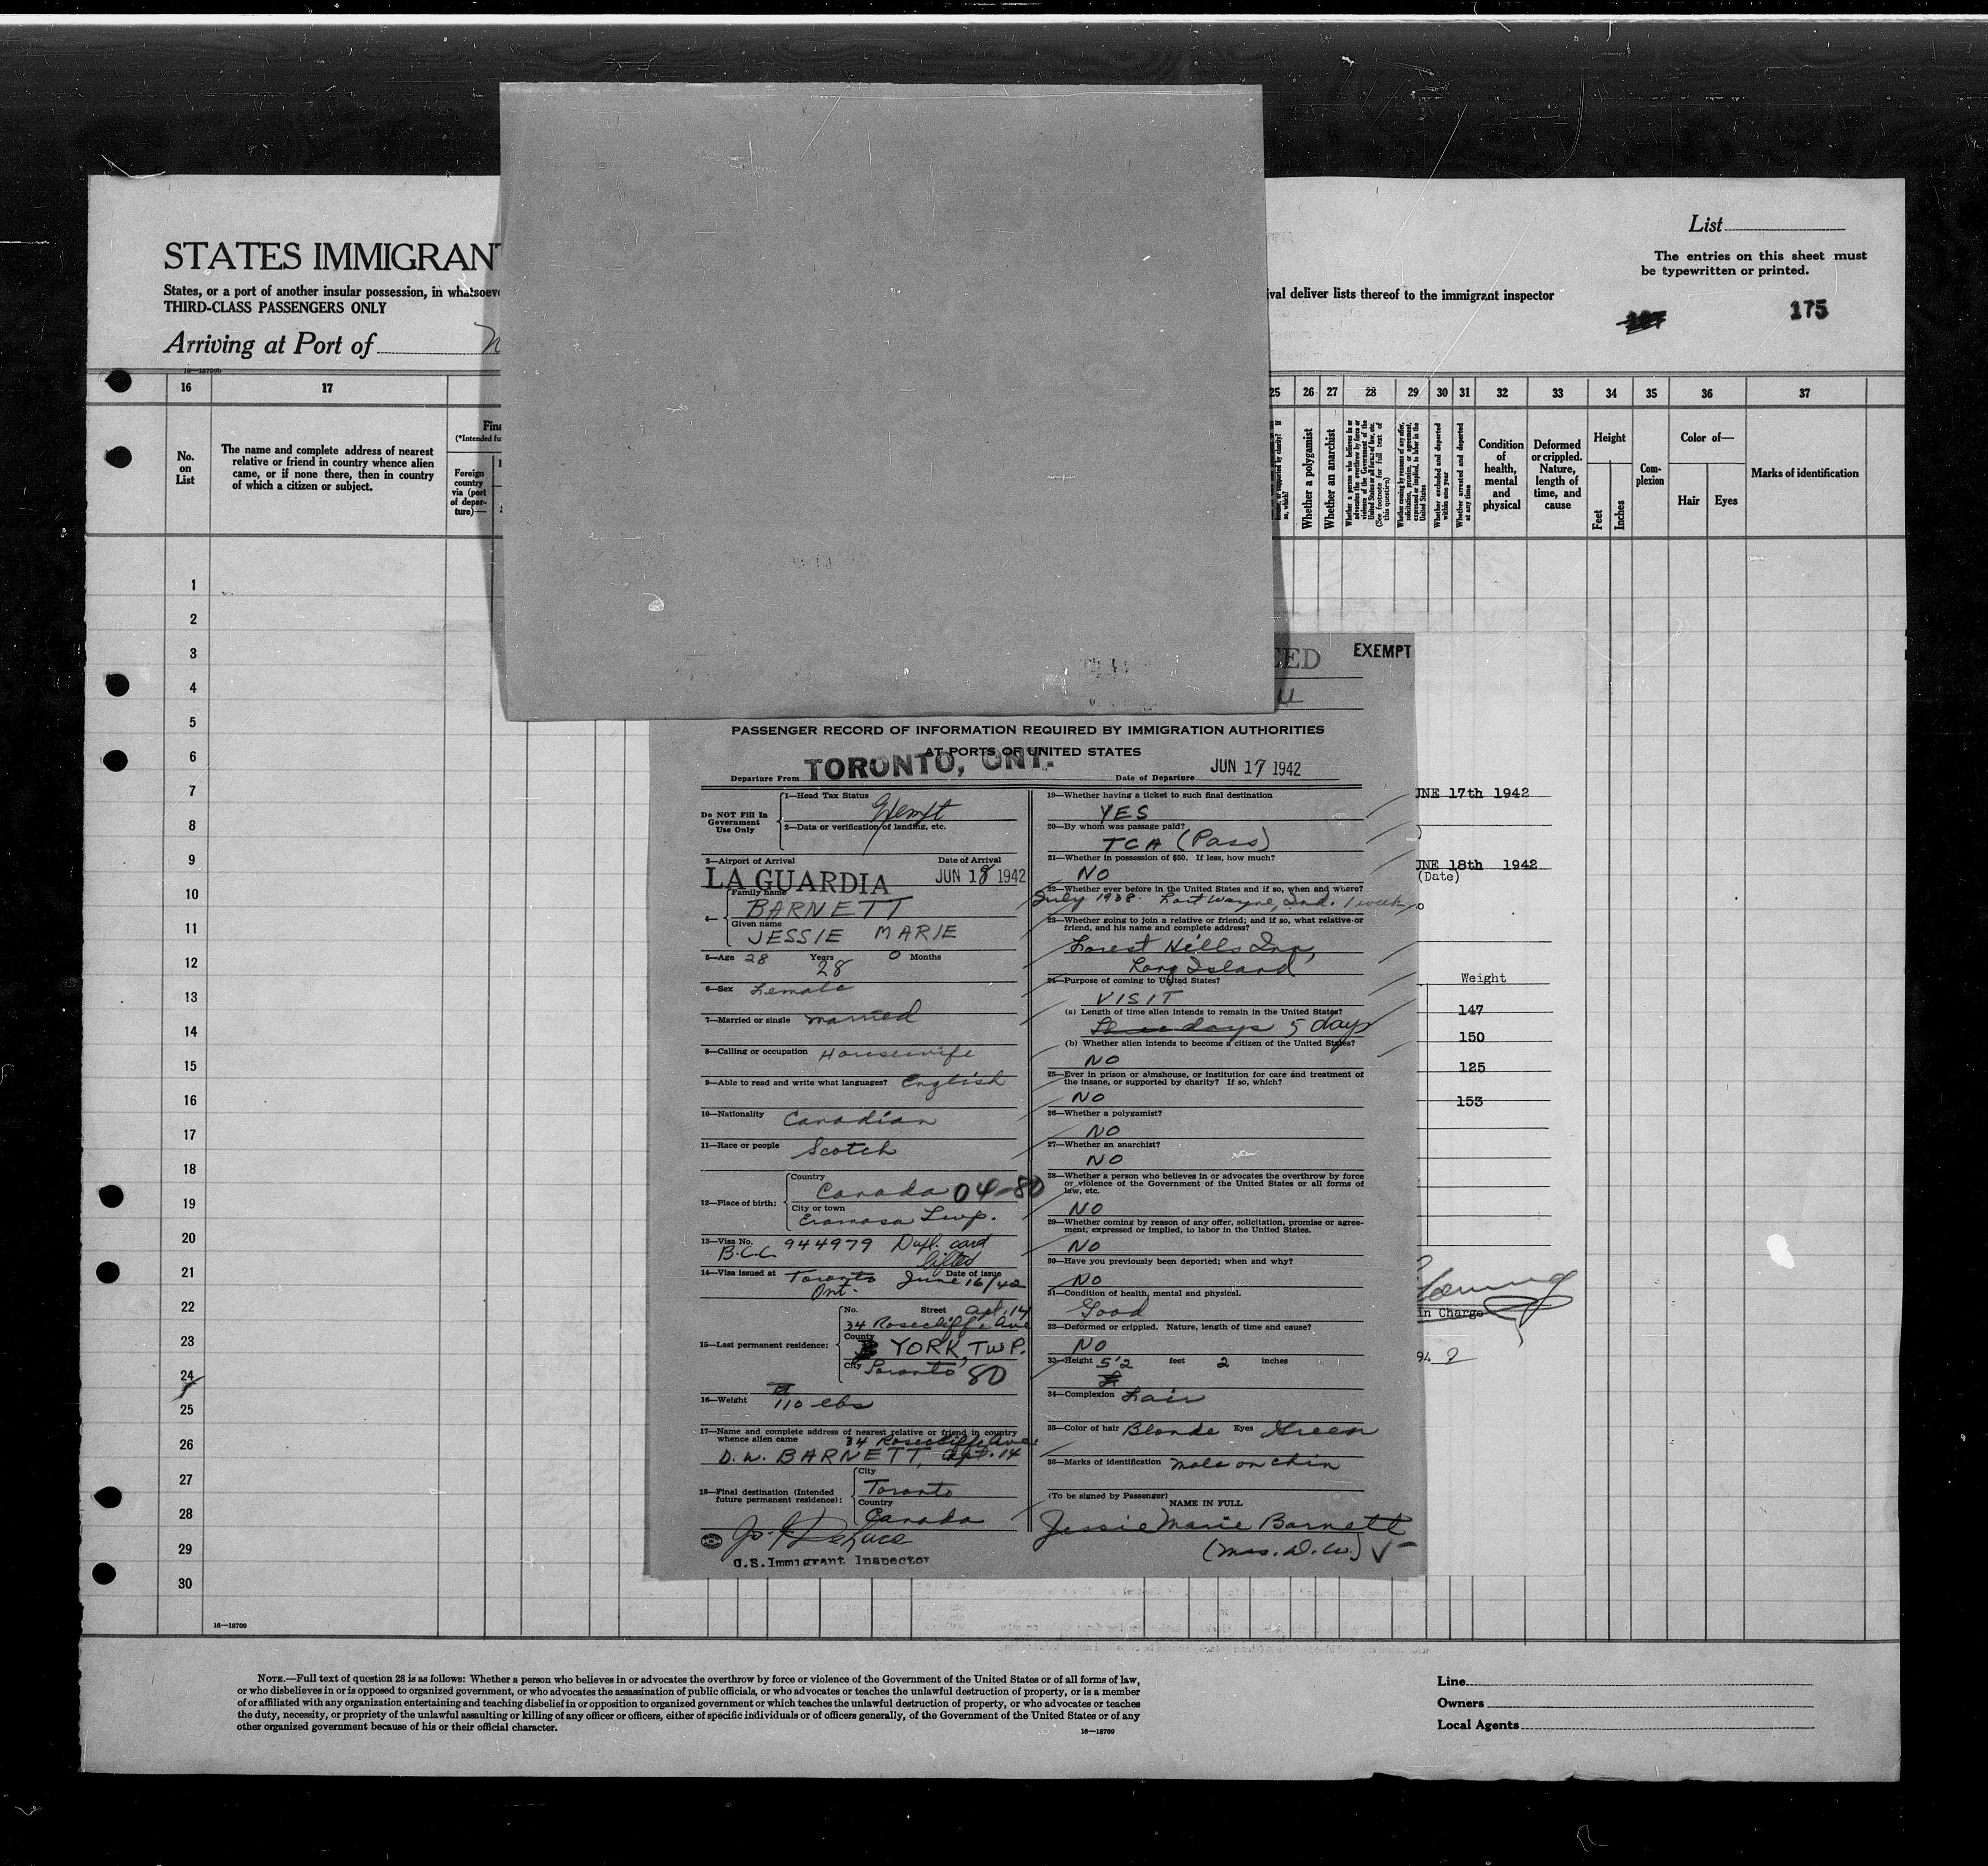 List
The entries on this sheet must
be typewritten or printed.
STATES IMMIGRAN
States, or a port of another insular possession, in whatsoev
ival deliver lists thereof to the immigrant inspector
THIRD-CLASS PASSENGERS ONLY
175
Arriving at Port of
16 17 25 26 27 28 29 30 31 32 33 34 35 36 37
No.
on
List
The name and complete address of nearest
relative or friend in country whence alien
came, or if none there, then in country
of which a citizen or subject.
Fina
(*Intended fu
Foreign
country
via (port
of depar-
ture)—
Whether a polygamist
Whether an anarchist
Whether a person who believes in or
advocates the overthrow by force or
violence of the Government of the
United States or all forms of law, etc.
(See footnote for full text of
this question)
Whether coming by reason of any offer,
solicitation, promise, or agreement,
expressed or implied, to labor in the
United States
Whether excluded and deported
within one year
Whether arrested and deported
at any time
Condition
of
health,
mental
and
physical
Deformed
or crippled.
Nature,
length of
time, and
cause
Height
Feet
Inches
Com-
plexion
Color of—
Hair Eyes
Marks of identification
1
2
3
4
5
6
7
8
9
10
11
12
13
14
15
16
17
18
19
20
21
22
23
24
25
26
27
28
29
30
EXEMPT
PASSENGER RECORD OF INFORMATION REQUIRED BY IMMIGRATION AUTHORITIES
AT PORTS OF UNITED STATES
Departure From TORONTO, ONT. Date of Departure JUN 17 1942
Do NOT Fill In
Government
Use Only
1—Head Tax Status
Exempt
2—Data or verification of landing, etc.
3—Airport of Arrival Date of Arrival
LA GUARDIA JUN 18 1942
4—
Family name
BARNETT
Given name
JESSIE MARIE
5—Age 28 Years 0 Months
28
6—Sex Female
7—Married or single married
8—Calling or occupation Housewife
9—Able to read and write what languages? English
10—Nationality Canadian
11—Race or people Scotch
12—Place of birth:
Country
Canada 04-80
City or town
Eramosa Twp.
13—Visa No. 944979 Dupl. card
B.C.C. lifted
14—Visa issued at Toronto Date of issue June 16/42
Ont.
15—Last permanent residence:
No. Street apt. 14
34 Rosecliffe Ave
County
YORK, TWP.
City Toronto 80
16—Weight 110 lbs
17—Name and complete address of nearest relative or friend in country
whence alien came 34 Rosecliffe Ave
D. W. BARNETT, apt. 14
18—Final destination (Intended
future permanent residence):
City
Toronto
Country
Canada
U.S. Immigrant Inspector
19—Whether having a ticket to such final destination
YES
20—By whom was passage paid?
TCA (Pass)
21—Whether in possession of $50. If less, how much?
NO
22—Whether ever before in the United States and if so, when and where?
July 1938. Fort Wayne, Ind. 1 week
23—Whether going to join a relative or friend; and if so, what relative or
friend, and his name and complete address?
Forest Hills Inn,
Long Island
24—Purpose of coming to United States?
VISIT
(a) Length of time alien intends to remain in the United States?
5 days
(b) Whether alien intends to become a citizen of the United States?
NO
25—Ever in prison or almshouse, or institution for care and treatment of
the insane, or supported by charity? If so, which?
NO
26—Whether a polygamist?
NO
27—Whether an anarchist?
NO
28—Whether a person who believes in or advocates the overthrow by force
or violence of the Government of the United States or all forms of
law, etc.
NO
29—Whether coming by reason of any offer, solicitation, promise or agree-
ment, expressed or implied, to labor in the United States.
NO
30—Have you previously been deported; when and why?
NO
31—Condition of health, mental and physical.
Good
32—Deformed or crippled. Nature, length of time and cause?
NO
33—Height 5'2 feet 2 inches
34—Complexion Fair
35—Color of hair Blonde Eyes Green
36—Marks of identification Mole on chin
(To be signed by Passenger)
NAME IN FULL
Jessie Marie Barnett
(Mrs. D. W.)
UNE 17th 1942
UNE 18th 1942
(Date)
Weight
147
150
125
153
in Charge
94 2
16—18709
NOTE.—Full text of question 28 is as follows: Whether a person who believes in or advocates the overthrow by force or violence of the Government of the United States or of all forms of law,
or who disbelieves in or is opposed to organized government, or who advocates the assassination of public officials, or who advocates or teaches the unlawful destruction of property, or is a member
of or affiliated with any organization entertaining and teaching disbelief in or opposition to organized government or which teaches the unlawful destruction of property, or who advocates or teaches
the duty, necessity, or propriety of the unlawful assaulting or killing of any officer or officers, either of specific individuals or of officers generally, of the Government of the United States or of any
other organized government because of his or their official character.
16—18709
Line
Owners
Local Agents